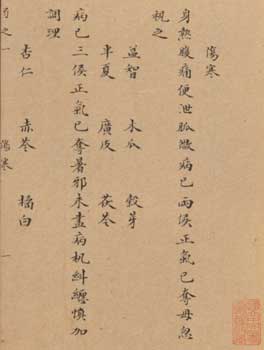 傷寒
身熱腹痛便泄脈微病已兩候正氣已奪毋忽
視之
益智　木瓜　穀芽
半夏　廣皮　茯苓
病已三候正氣已奪暑邪未盡病机糾纏慎加
調理
杏仁　赤苓　橘白
傷寒　一